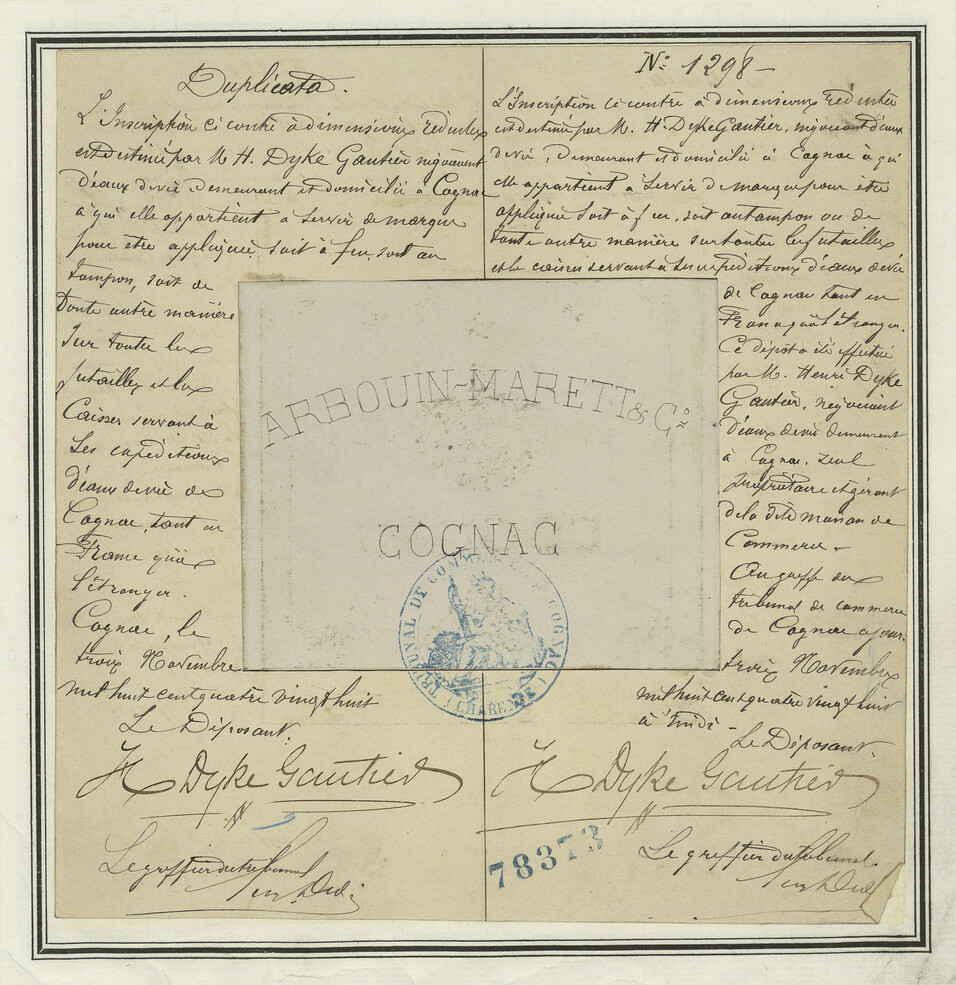 Duplicata.
L'Inscription ci contre à dimensions réduites
est destinée par M H. Dyke Gautier négociant
d'eaux de vie demeurant et domicilié à Cognac
à qui elle appartient à servir de marque
pour être appliquée soit à feu, soit au
tampon, soit de
toute autre manière
sur toutes les
futailles et les
Caisses servant à
ses expéditions
d'eaux de vie de
Cognac, tant en
France qu'à
l'étranger.
Cognac, le
trois Novembre
mil huit cent quatre vingt huit
Le Déposant.
H Dyke Gautier
Le greffier du tribunal
No 1298 –
L'Inscription ci contre à dimensions réduites
est destinée par M. H. Dyke Gautier, négociant d'eaux
de vie, demeurant et domicilié à Cognac à qui
elle appartient à servir de marque pour être
appliquée soit à feu, soit au tampon ou de
toute autre manière sur toutes les futailles
et les caisses servant à ses expéditions d'eaux de vie
de Cognac tant en
France qu'à l'étranger.
Ce dépôt a été effectué
par M. Henri Dyke
Gautier, négociant
d'eaux de vie demeurant
à Cognac, seul
propriétaire et gérant
de la dite maison de
Commerce –
Au greffe du
tribunal de commerce
de Cognac ce jour
trois Novembre
mil huit cent quatre vingt huit
à midi –
Le Déposant.
H Dyke Gautier
78373
Le greffier du tribunal
ARBOUIN-MARETT & Co
COGNAC
TRIBUNAL DE COMMERCE DE COGNAC
(CHARENTE)